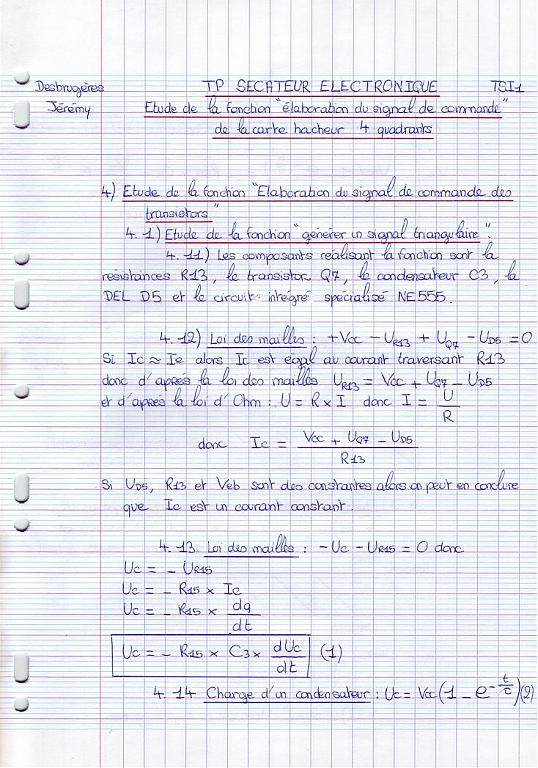 Desbrugères TP SECATEUR ELECTRONIQUE TSI1
Jérémy Etude de la fonction "élaboration du signal de commande"
de la carte hacheur 4 quadrants
4) Etude de la fonction "Elaboration du signal de commande des
transistors"
4. 1) Etude de la fonction "générer un signal triangulaire".
4. 11) Les composants réalisant la fonction sont la
résistances R13, le transistor Q7, le condensateur C3, la
DEL D5 et le circuit intégré spécialisé NE555.
4. 12) Loi des mailles : +Vcc - UR13 + UQ7 - UD5 = 0
Si Ic ≈ Ie alors Ic est égal au courant traversant R13
donc d'après la loi des mailles UR13 = Vcc + UQ7 - UD5
et d'après la loi d'Ohm : U = R × I donc I = U/R
donc Ic = (Vcc + UQ7 - UD5)/R13
Si UD5, R13 et Veb sont des constantes alors on peut en conclure
que Ic est un courant constant.
4. 13. Loi des mailles : -Uc - UR15 = 0 donc
Uc = - UR15
Uc = - R15 × Ic
Uc = - R15 × dq/dt
Uc = - R15 × C3 × dUc/dt (1)
4. 14 Charge d'un condensateur : Uc = Vcc (1 - e^(-t/τ)) (2)